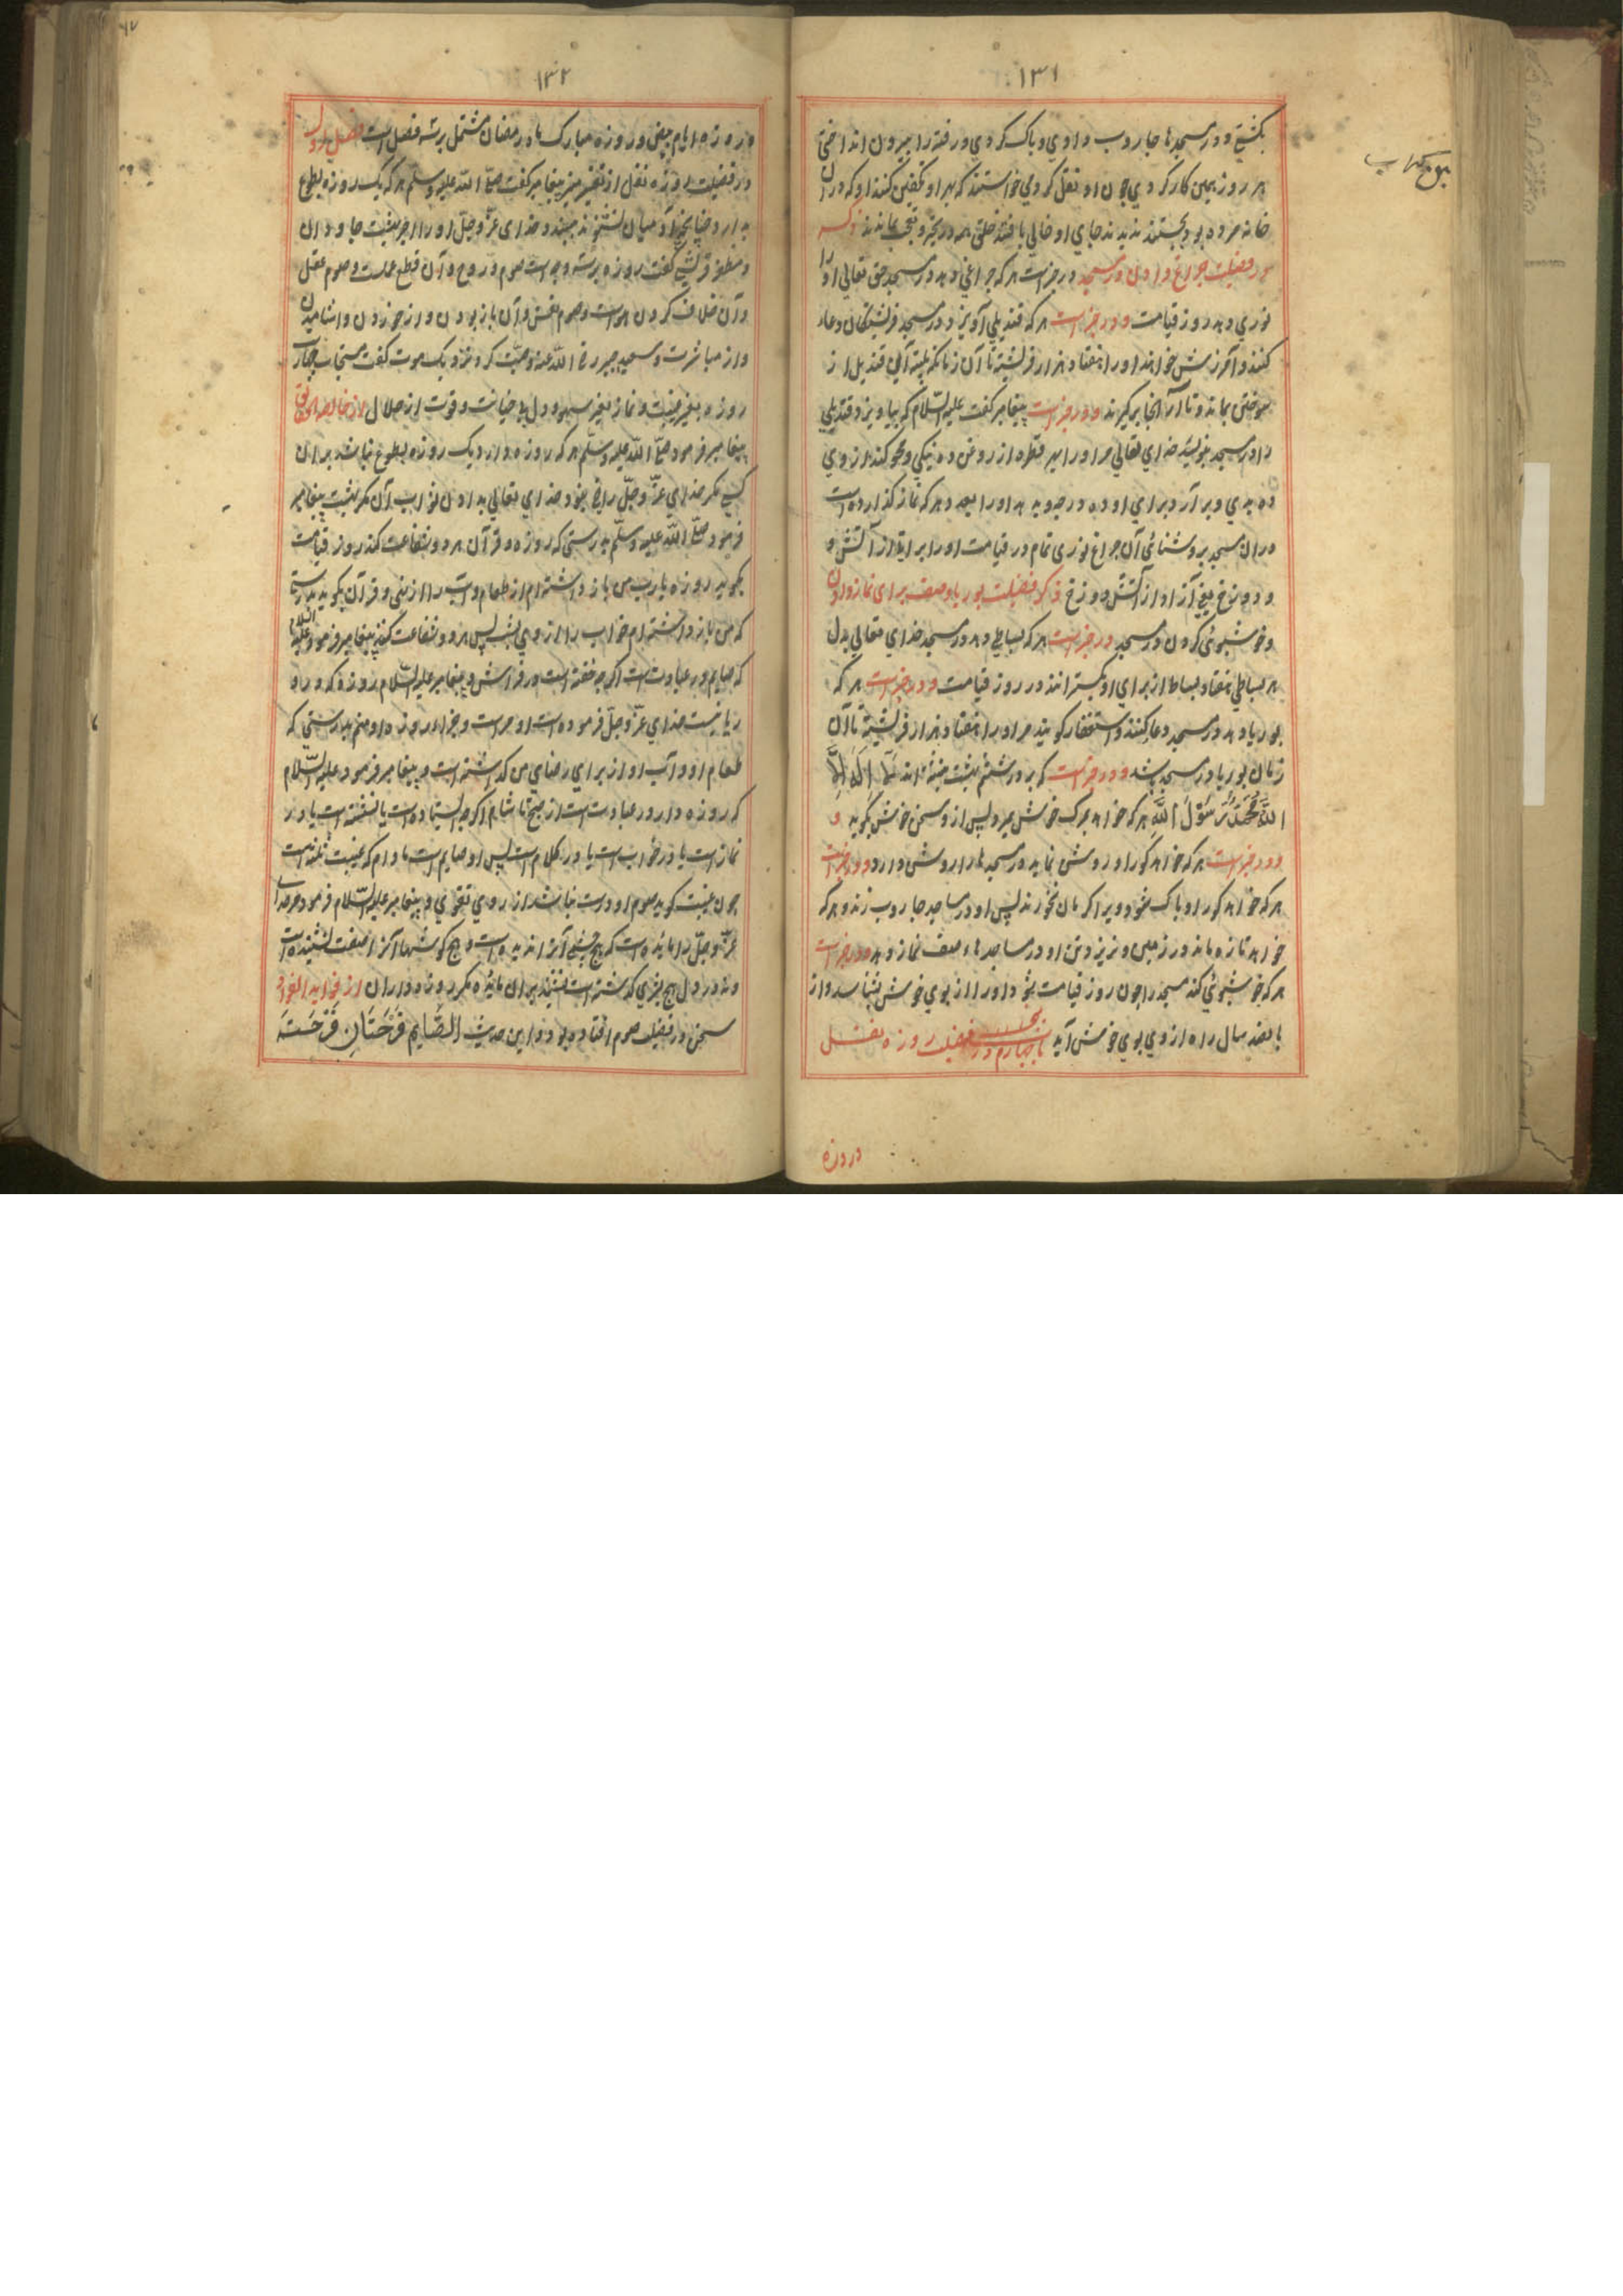 ۱۳۱
بکشتی و در مسجدها جاروب دادی و پاک کردی و رفته را بیرون انداختی
هر روز همین کار کردی چون او نقل کرد می خواستند که بهر او تکفین کنند او که در آن
خانه مرده بود بجستند ندیدند جای او خالی یافتند خلقی همه در تحیر و تعجب بماندند ذکر
در فضیلت چراغ دادن در مسجد در خبر است هر که چراغی دهد در مسجد حق تعالی او را
نوری دهد روز قیامت و در خبر است هر که قندیلی آویزد در مسجد فرشتگان دعا
کنند و آمرزش خواهند او را هفتاد هزار فرشته تا آن زمانکه پلیته آن قندیل از
سوختن بماند و تا از آنجا برگیرند و در خبر است پیغامبر گفت علیه السلام که بیاویزد قندیلی
در مسجد بنویسد خدای تعالی مر او را بهر قطره از روغن ده نیکی و محو کند از وی
ده بدی و برآرد برای او ده درجه و بدهد او را بعدد هر که نماز گذارده است
در آن مسجد بروشنائی آن چراغ نوری تمام در قیامت او را براند از آتش
و دوزخ یعنی آزاد از آتش دوزخ ذکر فضیلت بوریا و صف برای نماز دادن
و خوشبوئی کردن در مسجد در خبر است هر که بساطی دهد در مسجد خدای تعالی بدل
هر بساطی هفتاد بساط از برای او بگسترانند در روز قیامت و در خبر است هر که
بوریا دهد در مسجد دعا کنند و استغفار گویند مر او را هفتاد هزار فرشته تا آن
زمان بوریا در مسجد باشد و در خبر است که بر در هشتم بهشت نبشته اند لَا اِلٰهَ اِلَّا
اللّٰهُ مُحَمَّدٌ رَسُوْلُ اللّٰهِ هر که خواهد بمرگ خوش میرد پس از و سخن خوش بگوید و
و در خبر است هر که خواهد گور او روشن نماید در مسجدها را روشن دارد و در خبر است
هر که خواهد گور او پاک شود و ویرا کرمان نخورند پس او در مساجد جاروب زند و هر که
خواهد تازه ماند در زمین و نریزد تن او در مساجدها صف نماز دهد و در خبر است
هر که خوشبوئی کند مسجد را چون روز قیامت شود او را از بوی خوش بشناسد و از
پانصد سال راه از وی بوی خوش آید باب چهارم در فضیلت روزه نفل
در روزه
۱۳۲
در روزه ایام بیض و روزه مبارک ماه رمضان مشتمل برسه فصل است فصل اول
در فضیلت روزه نفل از تفسیر منیر پیغامبر گفت صلی الله علیه وسلم هر که یک روزه بطوع
بدارد چنانچه آدمیان نشنوند نبیند خدای عز و جل او را اجر بهشت جاودان
و مظفر قرشی گفت روزه برسه وجه است صوم روح و آن قطع عمل است و صوم عقل
و آن خلاف کردن هوا است و صوم نفس و آن باز بودن و از خوردن و اشامیدن
و از مباشرت و سعید جبیر رضی الله عنه وصیت کرد نزدیک موت گفت
روزه بغیر غیبت و نماز بغیر سهو و دل بی خیانت و قوت از حلال از خالصه الحقایق
پیغامبر فرمود صلی الله علیه وسلم هر که روزه دارد یک روزه بطوع نباشد بران
کسی مگر خدای عز و جل راضی نبود خدای تعالی بدادن ثواب آن مگر بهشت پیغامبر
فرمود صلی الله علیه وسلم بدرستی که روزه و قرآن هر دو شفاعت کنند روز قیامت
بگوید روزه یارب من باز داشته ام از طعام و آب را از منی و قرآن بگوید بدرستی
که من باز داشته ام خواب را از وی بشب پس هر دو شفاعت کنند پیغامبر فرمود علیه السلام
که صایم در عبادت است اگرچه خفته است در فراش و پیغامبر علیه السلام روزه که درو
ریا نیست خدای عز و جل فرموده است او مر است و جزاء روزه او منم بدرستی که
طعام او و آب او از برای رضای من گذاشته است و پیغامبر فرمود علیه السلام
که روزه دار در عبادت است از صبح تا شام اگرچه ایستاده است یا نشسته است یا در
نماز است یا در خواب است یا در کلام است پس او صایم است مادام که غیبت نکند است
چون غیبت گوید صوم او درست نباشد از روی تقوی و پیغامبر علیه السلام فرمود مر خدای
عز و جل را مائده است که هیچ چشمی آنرا ندیده است و هیچ گوش شما آنرا صفت نشنیده است
و نه در دل هیچ بشری گذشته است ننشیند بران مائده مگر روزه داران از فواید الفواد
سخن در فضیلت صوم افتاده بود و این حدیث الصَّایِمِ فَرْحَتَانِ فَرْحَتَه